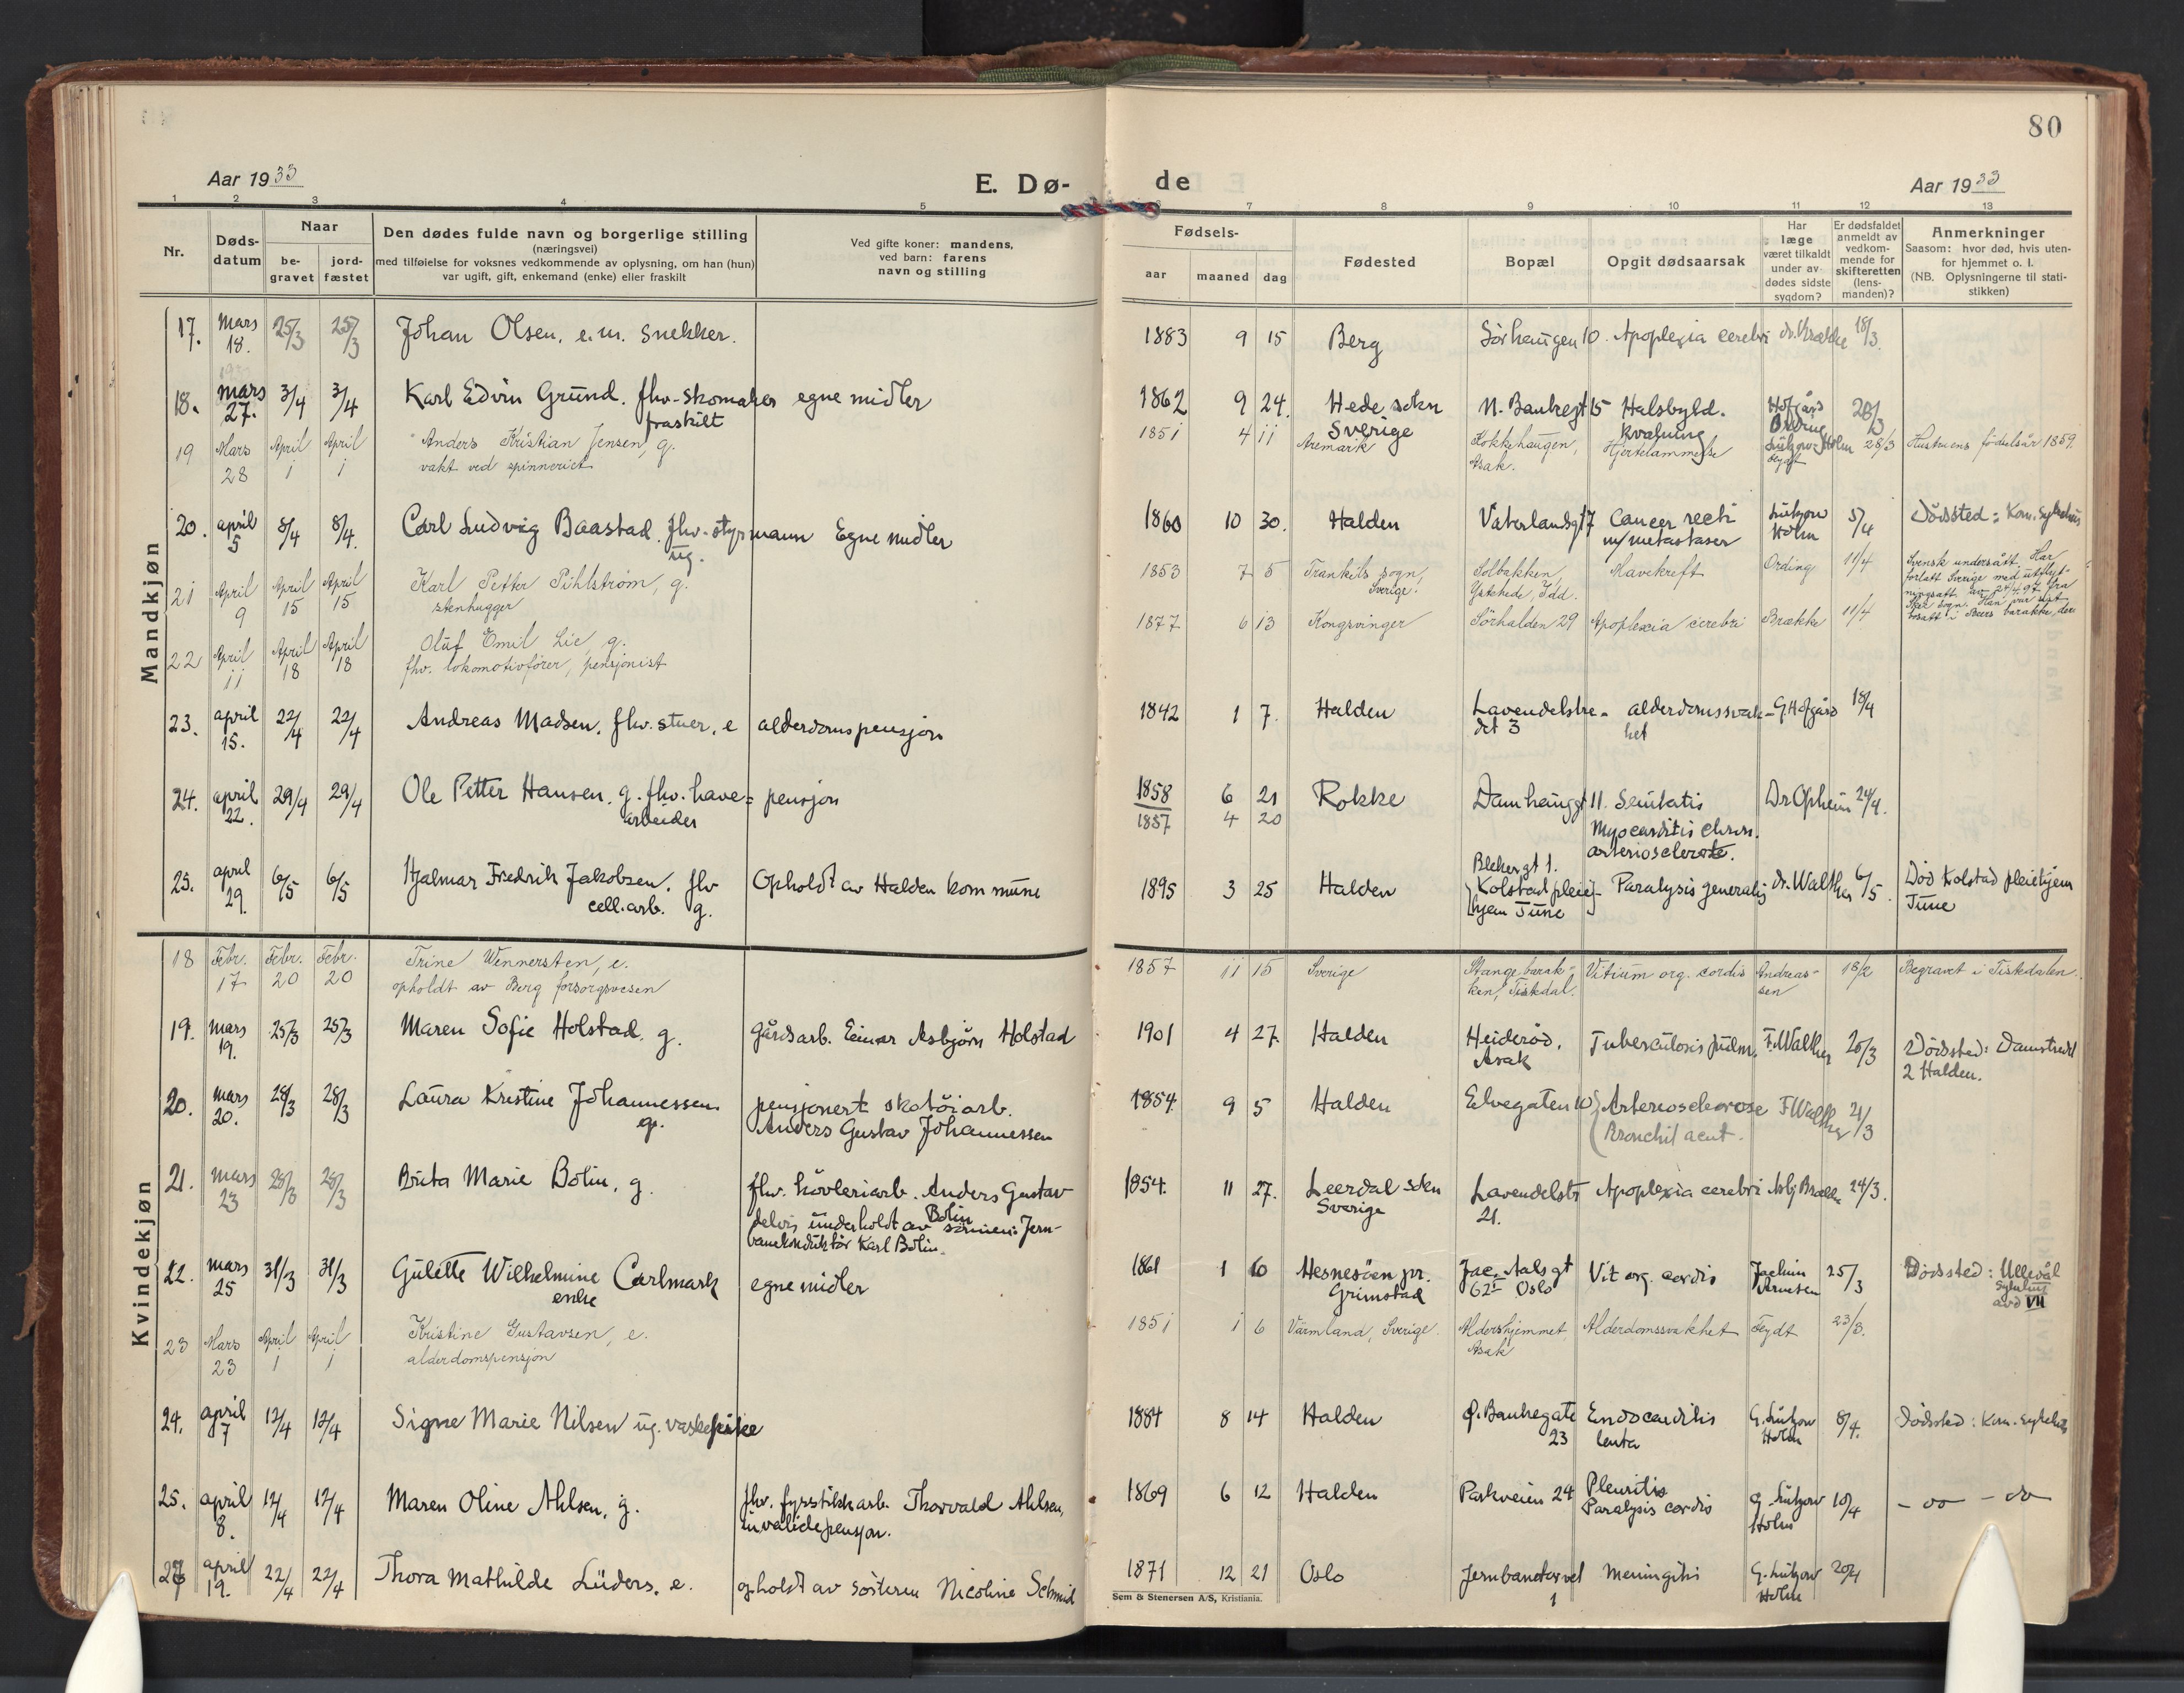 80
Aar 1933
E. Dø-
de
Aar 1933
1 2 3 4 5 6 7 8 9 10 11 12 13
Nr.
Døds-
datum
Naar
be-
gravet
jord-
fæstet
Den dødes fulde navn og borgerlige stilling
(næringsvei)
med tilføielse for voksnes vedkommende av oplysning, om han (hun)
var ugift, gift, enkemand (enke) eller fraskilt
Ved gifte koner: mandens,
ved barn: farens
navn og stilling
Fødsels-
aar maaned dag
Fødested
Bopæl
Opgit dødsaarsak
Har
læge
været tilkaldt
under av-
dødes sidste
sygdom?
Er dødsfaldet
anmeldt av
vedkom-
mende for
skifteretten
(lens-
manden)?
Anmerkninger
Saasom: hvor død, hvis uten-
for hjemmet o. l.
(NB. Oplysningerne til stati-
stikken)
Mandkjøn
17. Mars 18. 25/3 25/3 Johan Olsen, e.m. snekker. 1883 9 15 Berg Sørhaugen 10. Apoplexia cerebri dr. Brække 18/3.
18. Mars 27. 3/4 3/4 Karl Edvin Grund. fhv. skomaker egne midler 1862 9 24. Hede sokn N. Bankegt 15 Halsbyld. Hofgård 28/3
fraskilt Sverige Kvælning Ording
19 Mars 28 April 1 April 1 Anders Kristian Jensen, g. 1851 4 11 Aremark Kokkehaugen, Hjertelammelse Lützow-Holm 28/3 Hustruens fødselsår 1859.
vakt ved spinneriet Asak. Feydt
20. april 5 8/4 8/4. Carl Ludvig Baastad. fhv. styrmann Egne midler 1860 10 30. Halden Vaterlandsgt 7 Cancer recti Lützow 5/4 Dødssted: Kom. sykehus
ug. m/metastaser Holm
21 April 9 April 15 April 15 Karl Petter Pihlström, g. 1853 7 5 Trankils sogn, Solbakken, Mavekreft Ording 11/4 Svensk undersått. Har
stenhugger Sverige. Ystehede, Idd. forlatt Sverige med utflyt-
ningsatt. av 24/4 97 fra
bosatt i Beers barakke, der
22 April 11 April 18 April 18 Oluf Emil Lie, g. 1877 6 13 Kongsvinger Sörhalden 29 Apoplexia cerebri Brække 11/4
fhv. lokomotivfører, pensjonist
23. april 15. 22/4 22/4 Andreas Madsen. fhv. stuer. e alderdomspensjon 1842 1 7. Halden Lavendelstre- alderdomssvak- G. Hofgård 18/4
det 3 het
24. april 22. 29/4 29/4 Ole Petter Hansen. g. fhv. have= pensjon 1858 6 21 Rokke Damhauggt 11. Senilitatis Dr Opheim 24/4.
arbeider 1857 4 20 Myocarditis chron.
arteriosclerose.
25. april 29. 6/5 6/5 Hjalmar Fredrik Jakobsen. fhv Opholdt av Halden kommune 1895 3 25 Halden Blekergt 1. Paralysis generalis dr. Walther 6/5. Död Kolstad pleiehjem
cell. arb. g. Kolstad pleie- Tune
hjem Tune
Kvindekjøn
18 Febr. 17 Febr. 20 Febr. 20 Trine Wennersten, e. 1857 11 15 Sverige Stangebarak- Vitium org. cordis Andreas- 18/2 Begravet i Tistedalen.
opholdt av Berg forsorgsvesen ken, Tistedal. sen
19. mars 19. 25/3 25/3 Maren Sofie Holstad. g. gårdsarb. Einar Asbjørn Holstad 1901 4 27. Halden Heiderød. Tuberculosis pulm. F. Walther 20/3 Dödssted: Damstredet
Asak 2 Halden.
20. mars 20. 28/3 28/3 Laura Kristine Johannessen. pensjonert skotöiarb. 1854 9 5 Halden Elvegaten 10 Arteriosclerose F Walther 21/3
g. Anders Gustav Johannessen Bronchit acut.
21. mars 23 28/3 28/3 Brita Marie Bolin. g. fhv. høvleriarb. Anders Gustav 1854. 11 27. Leerdal sokn Lavendelstr Apoplexia cerebri Asbj Brække 24/3.
Bolin Sverige 21.
delvis underholdt av sönnen: Jern-
banekonduktör Karl Bolin.
22. mars 25 31/3 31/3 Gulette Wilhelmine Carlmark egne midler 1861 1 10 Hesnesöen pr. Jac. Aals gt Vit org. cordis Jochum 25/3 Dödssted: Ullevål
enke Grimstad 62 I Oslo Arnesen sykehus
avd VII
23 Mars 23 April 1 April 1 Kristine Gustavsen, e. 1851 1 6 Värmland, Sverige. Aldershjemmet, Alderdomssvakhet Feydt 23/3.
alderdomspensjon Asak
24. april 7 12/4 12/4 Signe Marie Nilsen ug. vaskepike 1884 8 14 Halden Ø. Bankegate Endocarditis G. Lützow 8/4. Dödssted: Kom. sykehus
23 lenta Holm
25. april 8. 12/4 12/4 Maren Oline Ahlsen, g. fhv. fyrstikkarb. Thorvald Ahlsen, 1869 6 12 Halden Parkveien 24 Pleuritis G. Lützow 10/4 - oo - do
invalidepensjon. Paralysis cordis Holm
27 april 19. 22/4 22/4 Thora Mathilde Lüders. e. opholdt av søsteren Nicoline Schmid 1871 12 21 Oslo Jernbanetorvet Meningitis G. Lützow 20/4
1 Holm
Sem & Stenersen A/S, Kristiania.